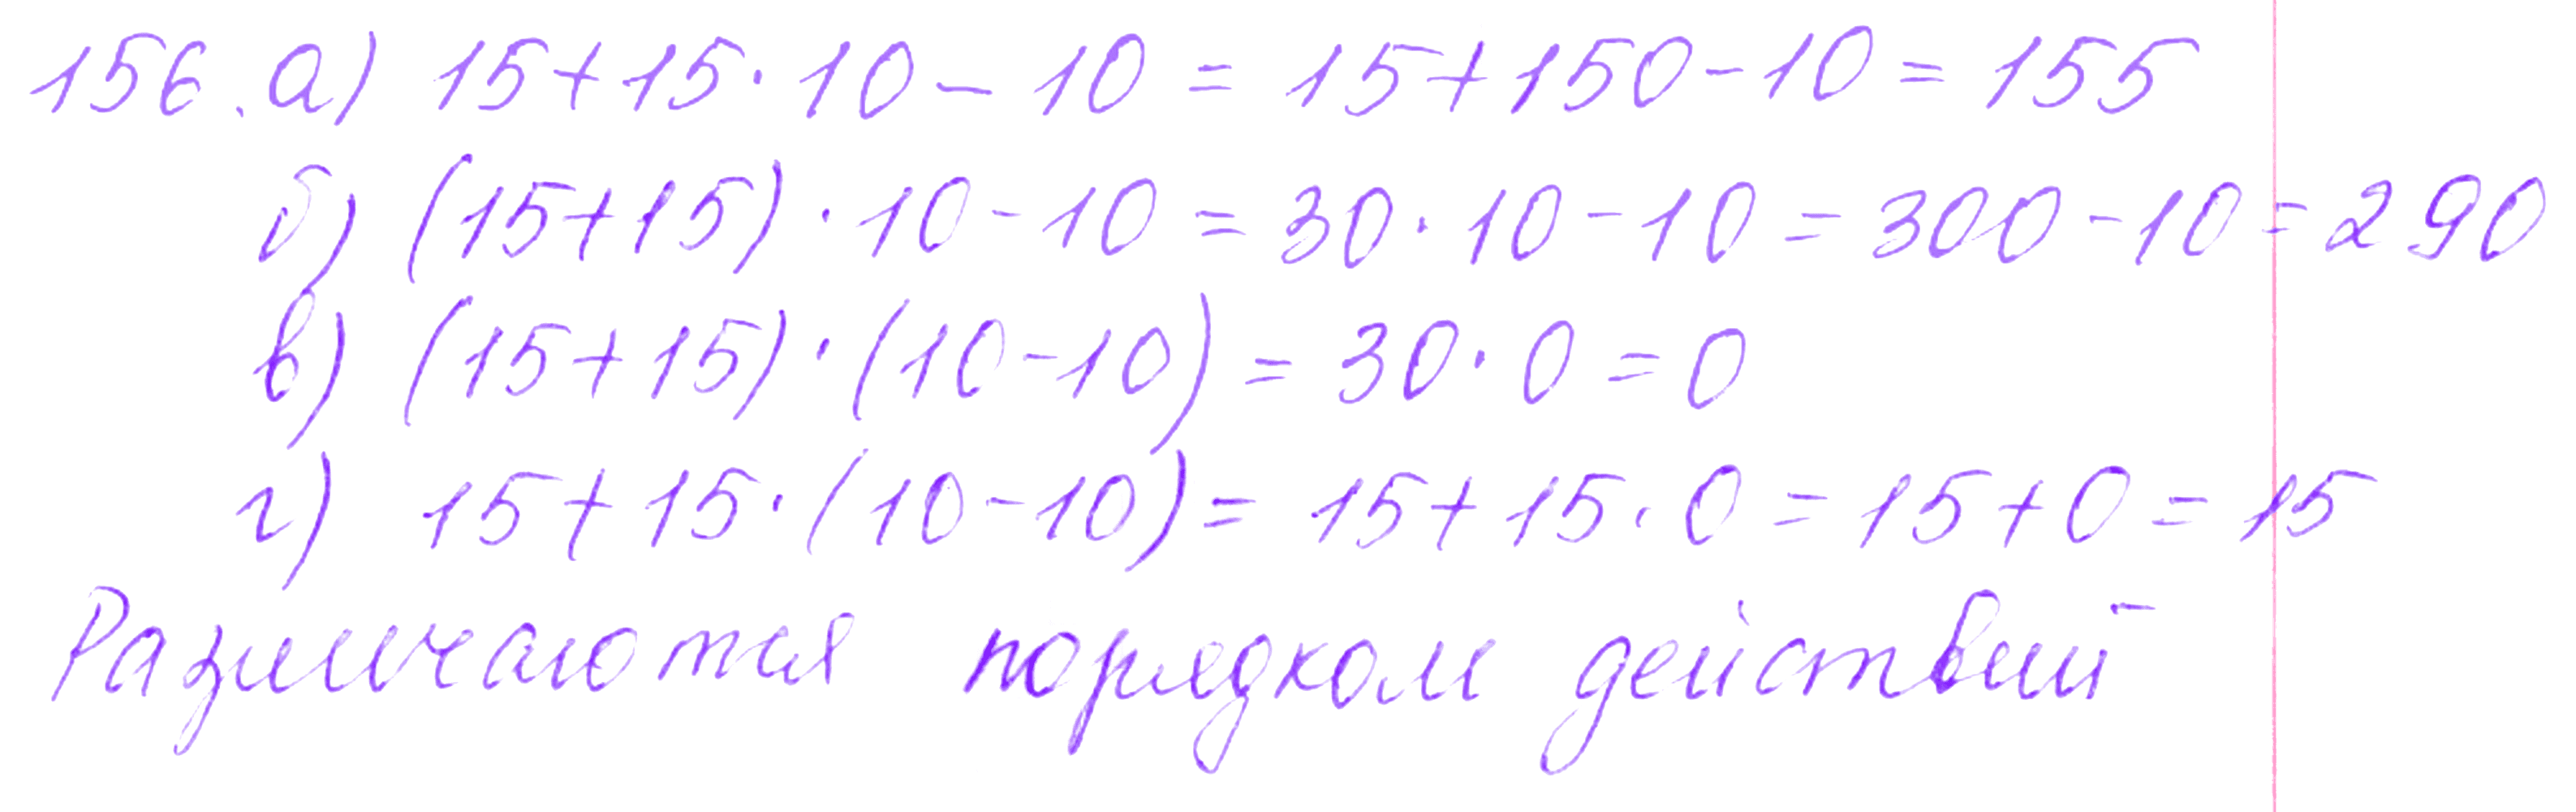 156. а) 15+15·10-10=15+150-10=155
б) (15+15)·10-10=30·10-10=300-10=290
в) (15+15)·(10-10)=30·0=0
г) 15+15·(10-10)=15+15·0=15+0=15
Различаются порядком действий